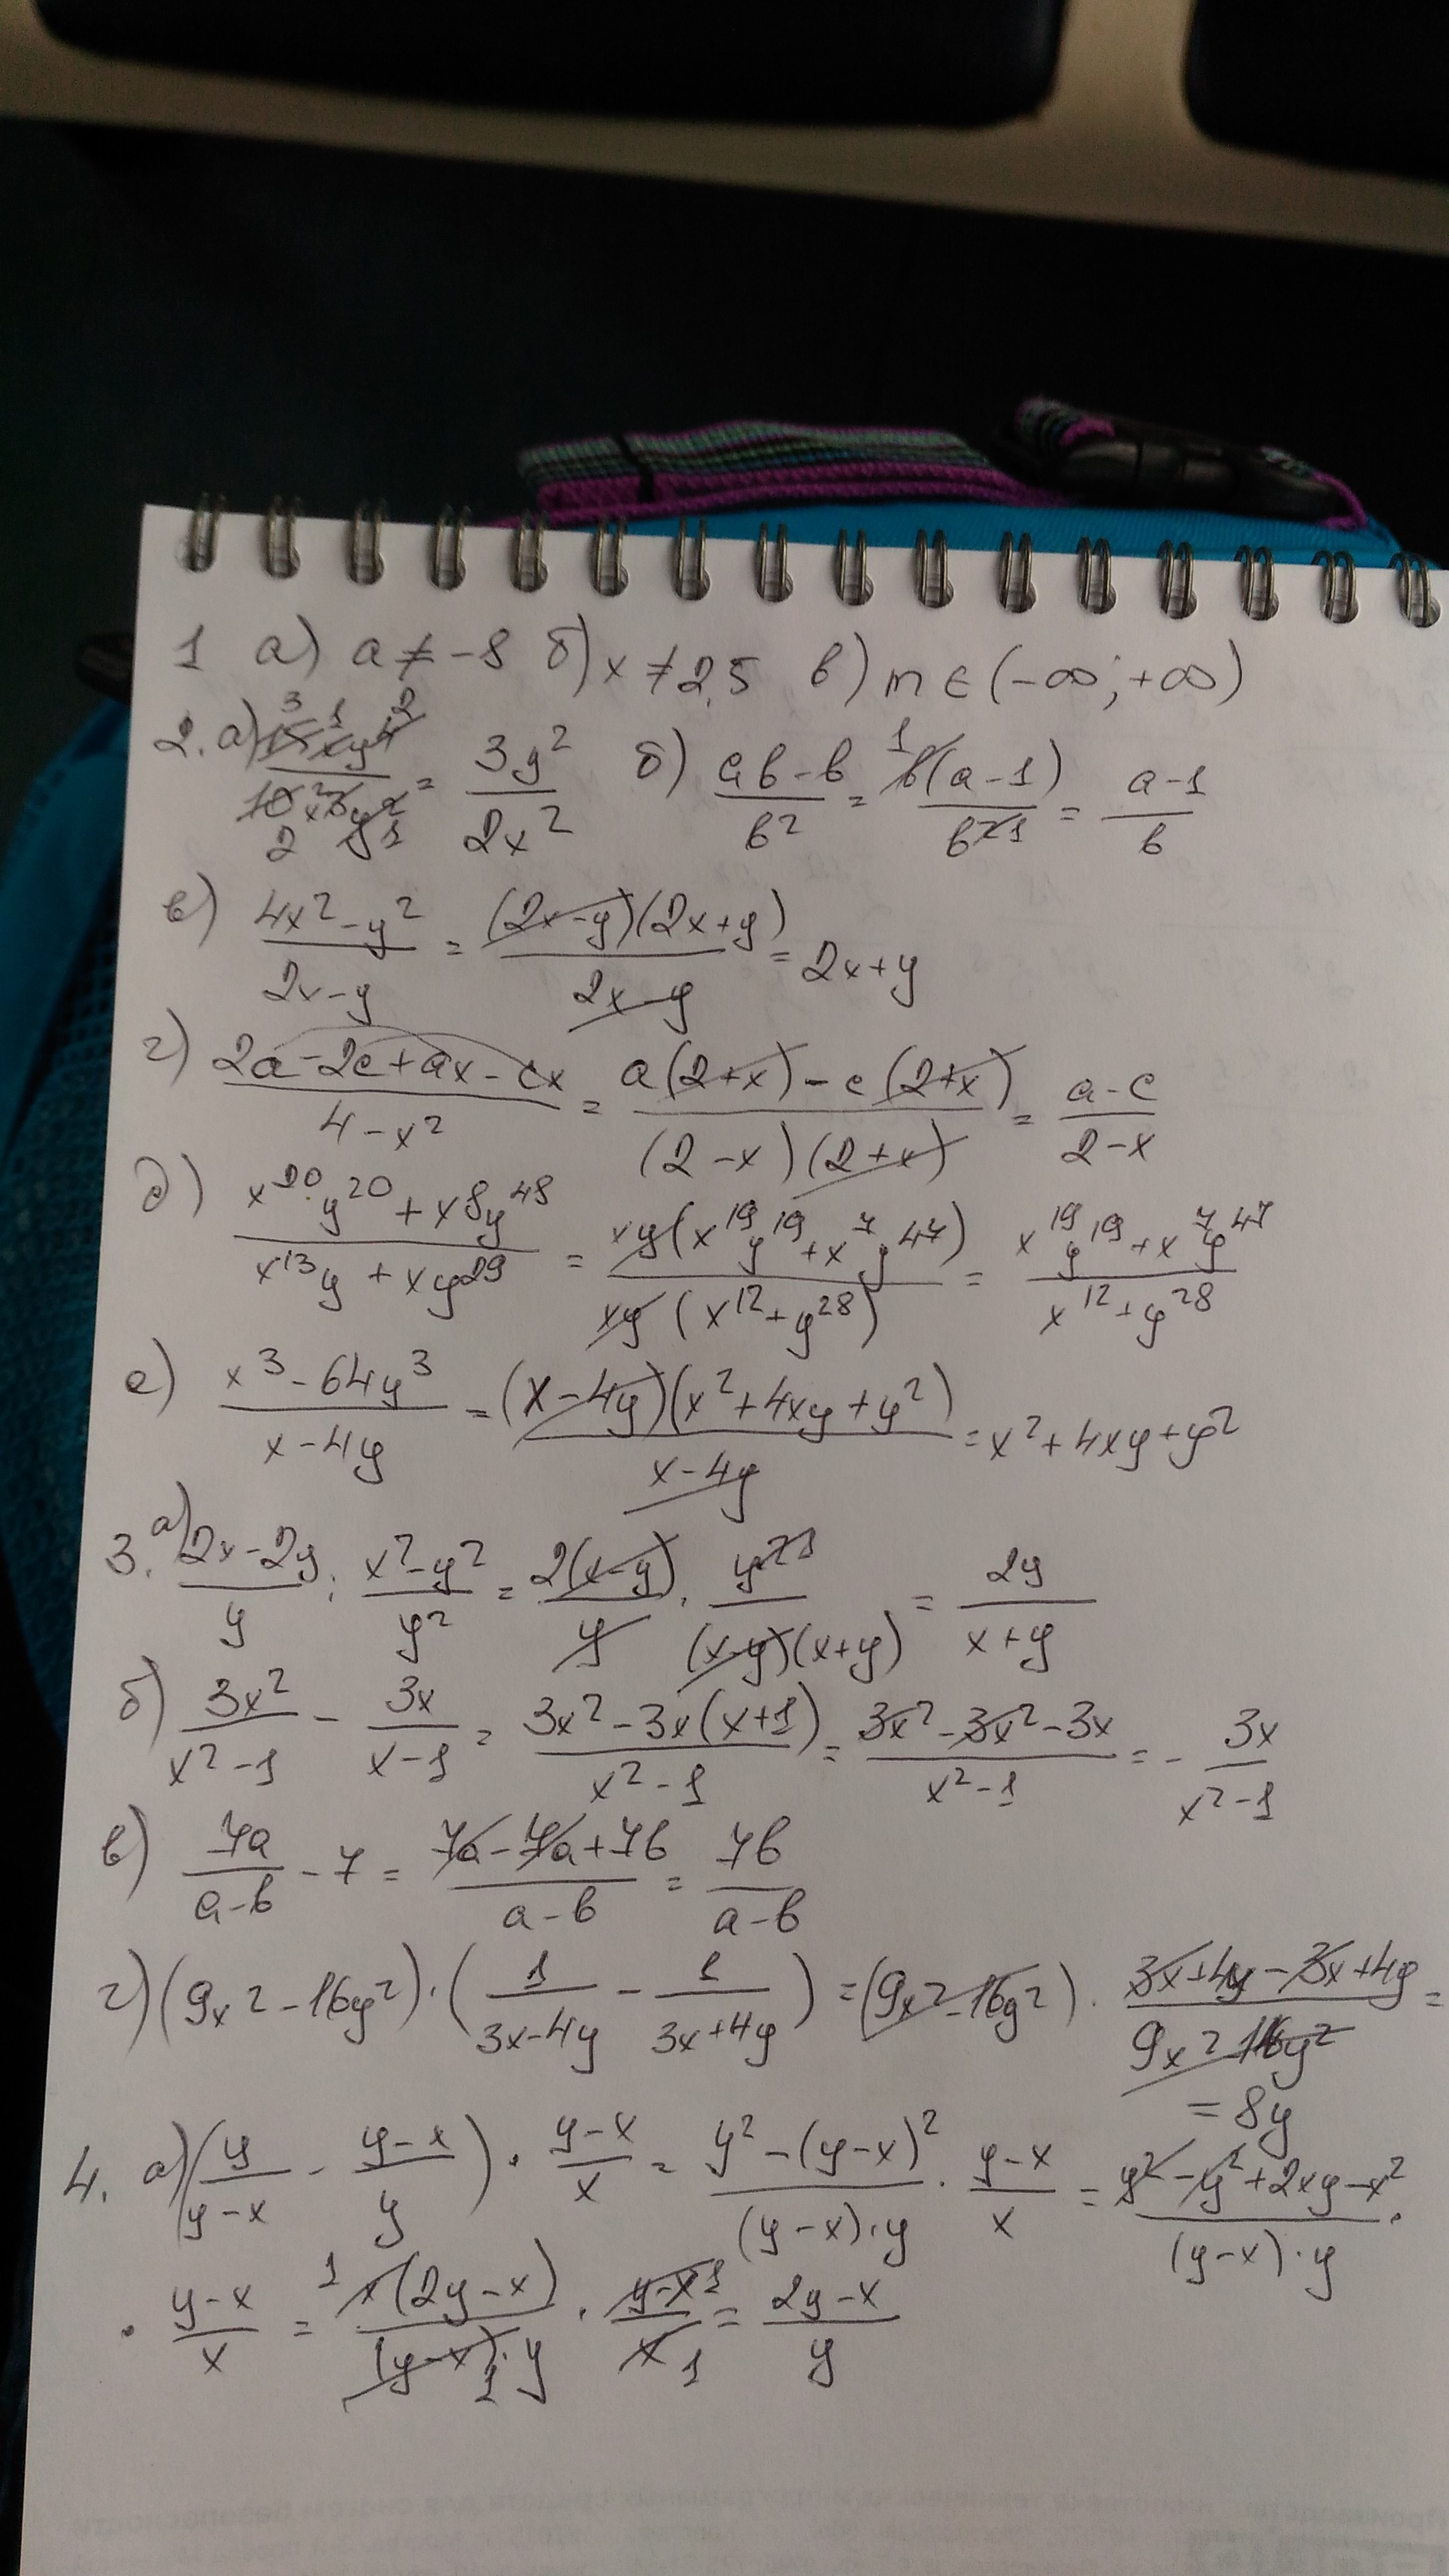 1 а) a ≠ -8 б) x ≠ 2,5 в) m ∈ (-∞; +∞)
2. а) 15xy⁴/10x³y² = 3y²/2x² б) (ab-b)/b² = b(a-1)/b² = (a-1)/b
в) (4x²-y²)/(2x-y) = (2x-y)(2x+y)/(2x-y) = 2x+y
г) (2a-2c+ax-cx)/(4-x²) = (a(2+x)-c(2+x))/((2-x)(2+x)) = (a-c)/(2-x)
д) (x²⁰y²⁰+x⁸y⁴⁸)/(x¹³y+xy²⁹) = xy(x¹⁹y¹⁹+x⁷y⁴⁷)/(xy(x¹²+y²⁸)) = (x¹⁹y¹⁹+x⁷y⁴⁷)/(x¹²+y²⁸)
е) (x³-64y³)/(x-4y) = (x-4y)(x²+4xy+y²)/(x-4y) = x²+4xy+y²
3. а) (2x-2y)/y : (x²-y²)/y² = 2(x-y)/y · y²/((x-y)(x+y)) = 2y/(x+y)
б) 3x²/(x²-1) - 3x/(x-1) = (3x²-3x(x+1))/(x²-1) = (3x²-3x²-3x)/(x²-1) = - 3x/(x²-1)
в) 7a/(a-b) - 7 = (7a-7a+7b)/(a-b) = 7b/(a-b)
г) (9x²-16y²)·(1/(3x-4y) - 1/(3x+4y)) = (9x²-16y²) · (3x+4y-3x+4y)/(9x²-16y²) =
= 8y
4. а) (y/(y-x) - (y-x)/y) · (y-x)/x = (y²-(y-x)²)/((y-x)·y) · (y-x)/x = (y²-y²+2xy-x²)/((y-x)·y) ·
· (y-x)/x = x(2y-x)/((y-x)·y) · (y-x)/x = (2y-x)/y